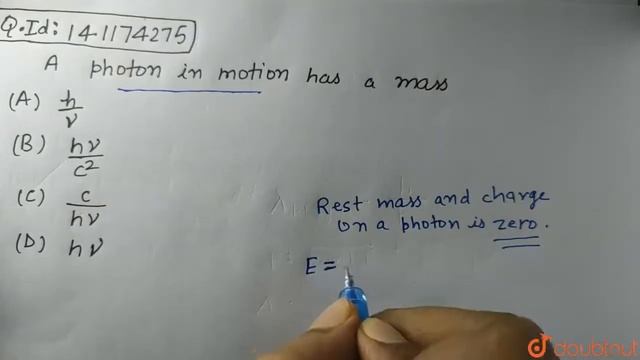 Q.Id: 141174275
A photon in motion has a mass
(A) h/ν
(B) hν/c²
(C) c/hν
(D) hν
Rest mass and charge
on a photon is zero.
E =
doubtnut